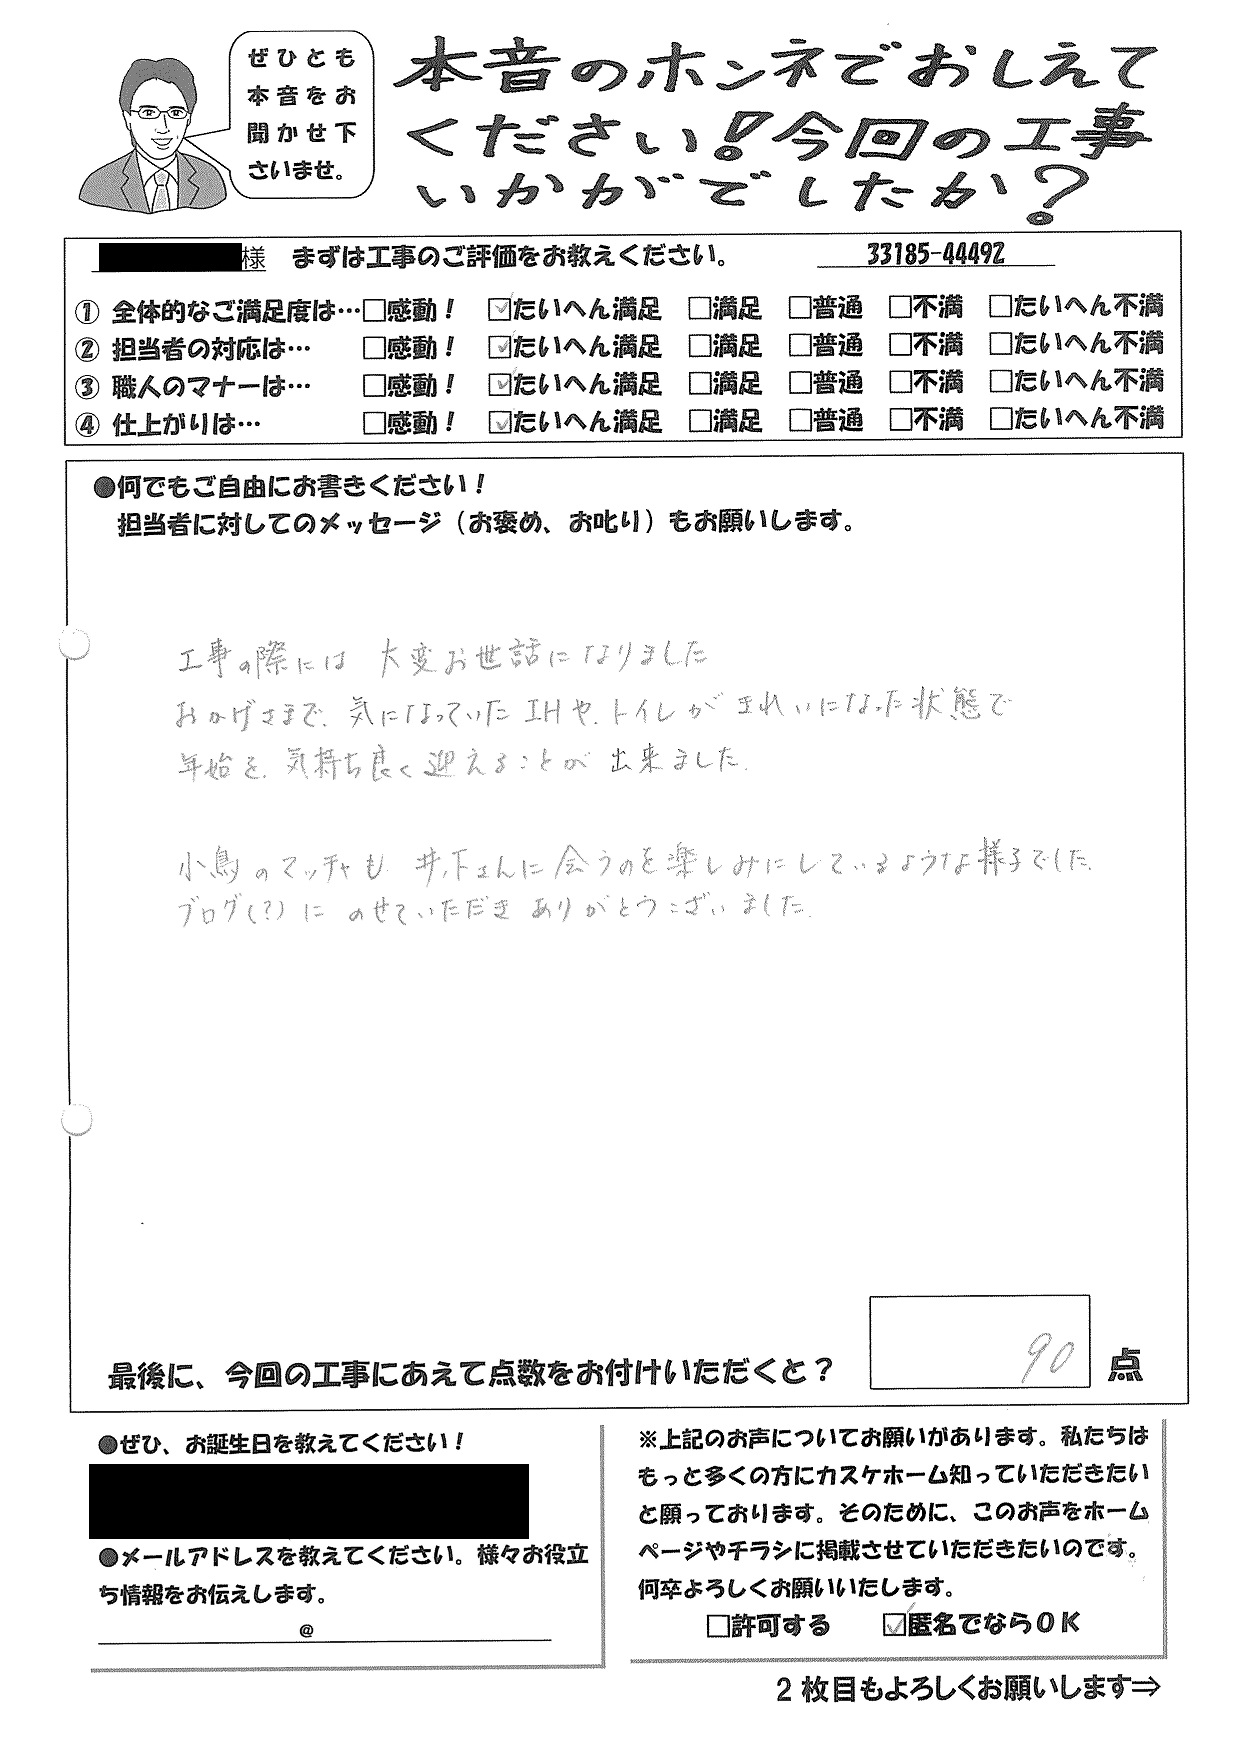 ぜひとも
本音をお
聞かせ下
さいませ。
本音のホンネでおしえて
ください!今回の工事
いかがでしたか?
様 まずは工事のご評価をお教えください。 33185-44492
① 全体的なご満足度は…□感動! ☑たいへん満足 □満足 □普通 □不満 □たいへん不満
② 担当者の対応は… □感動! ☑たいへん満足 □満足 □普通 □不満 □たいへん不満
③ 職人のマナーは… □感動! ☑たいへん満足 □満足 □普通 □不満 □たいへん不満
④ 仕上がりは… □感動! ☑たいへん満足 □満足 □普通 □不満 □たいへん不満
●何でもご自由にお書きください!
担当者に対してのメッセージ(お褒め、お叱り)もお願いします。
工事の際には 大変お世話になりました
おかげさまで、気になっていたIHや、トイレが きれいになった状態で
年始を、気持ち良く迎えることが 出来ました。
小鳥のマッチャも 井下さんに会うのを楽しみにしているような様子でした。
ブログ(?)に のせていただき ありがとうございました。
最後に、今回の工事にあえて点数をお付けいただくと? 90 点
●ぜひ、お誕生日を教えてください!
●メールアドレスを教えてください。様々お役立
ち情報をお伝えします。
@
※上記のお声についてお願いがあります。私たちは
もっと多くの方にカスケホーム知っていただきたい
と願っております。そのために、このお声をホーム
ページやチラシに掲載させていただきたいのです。
何卒よろしくお願いいたします。
□許可する ☑匿名でならOK
2枚目もよろしくお願いします⇒